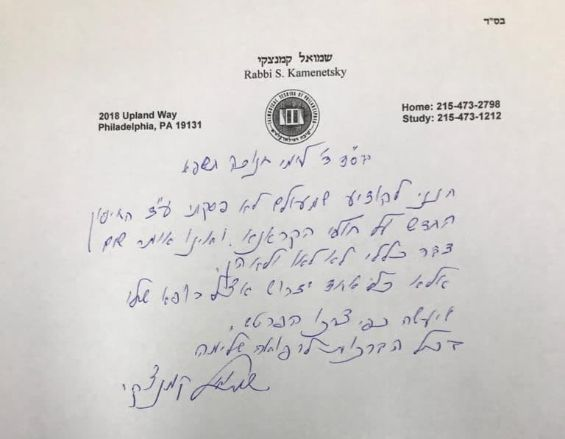 בס"ד
שמואל קמנצקי
Rabbi S. Kamenetsky
2018 Upland Way
Philadelphia, PA 19131
Home: 215-473-2798
Study: 215-473-1212
בס"ד ה' לימי חנוכה תשפא
הנני להודיע שמעולם לא פסקתי ע"ד החיסון
החדש על חולי הקראנא. ואינו אומר שום
דבר כללי לא לאו ולא הן.
אלא כל אחד ידרוש אצל רופא שלו
שיעשה כפי צרכו הפרטי.
בכל הברכות לרפואה שלימה
שמואל קמנצקי